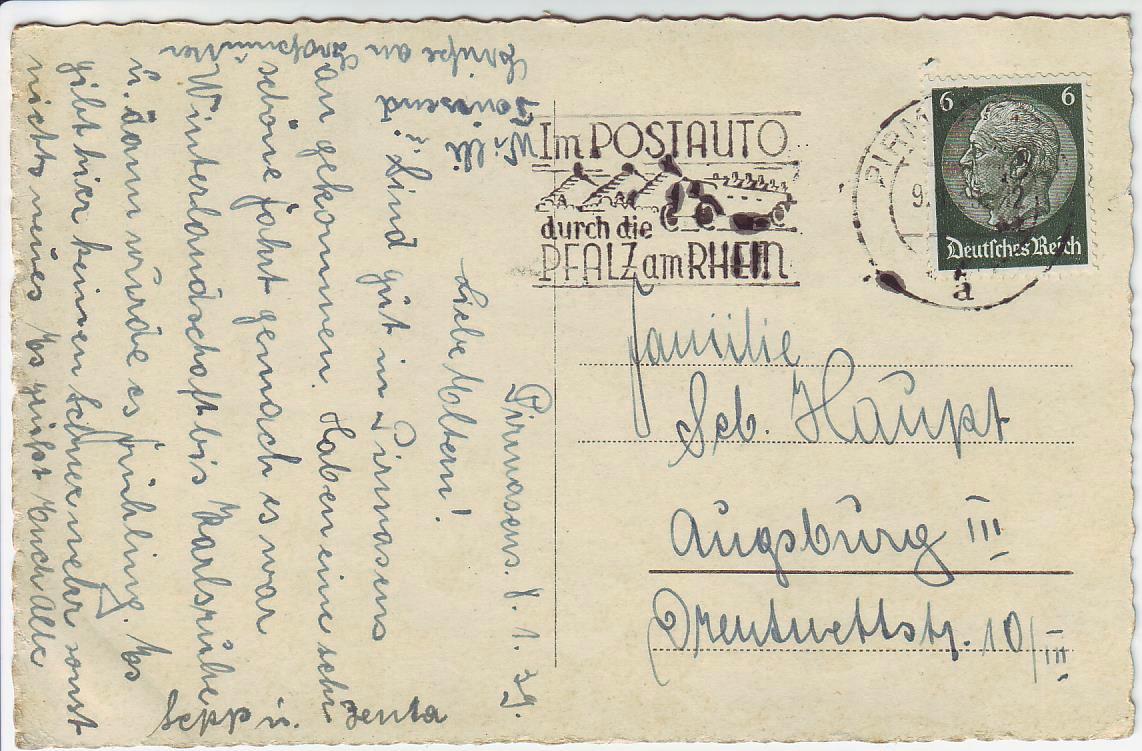 Pirmasens. 8. 1. 39.
Liebe Eltern!
Sind gut in Pirmasens
angekommen. Haben eine sehr
schöne fahrt gemach es war
Winterlandschaft bis Karlsruhe
u. dann wurde es frühling. Es
gibt hier keinen Schnee mehr sonst
nichts neues Es grüßt Euch alle
Sepp u. Zenta
Grüße an Großmutter
Tausend
Willi u.
Im POSTAUTO
durch die
PFALZ am RHEIN
PIRM
a
6 6
Deutsches Reich
Familie
Seb. Haupt
Augsburg III
Drentwettstr. 10/III